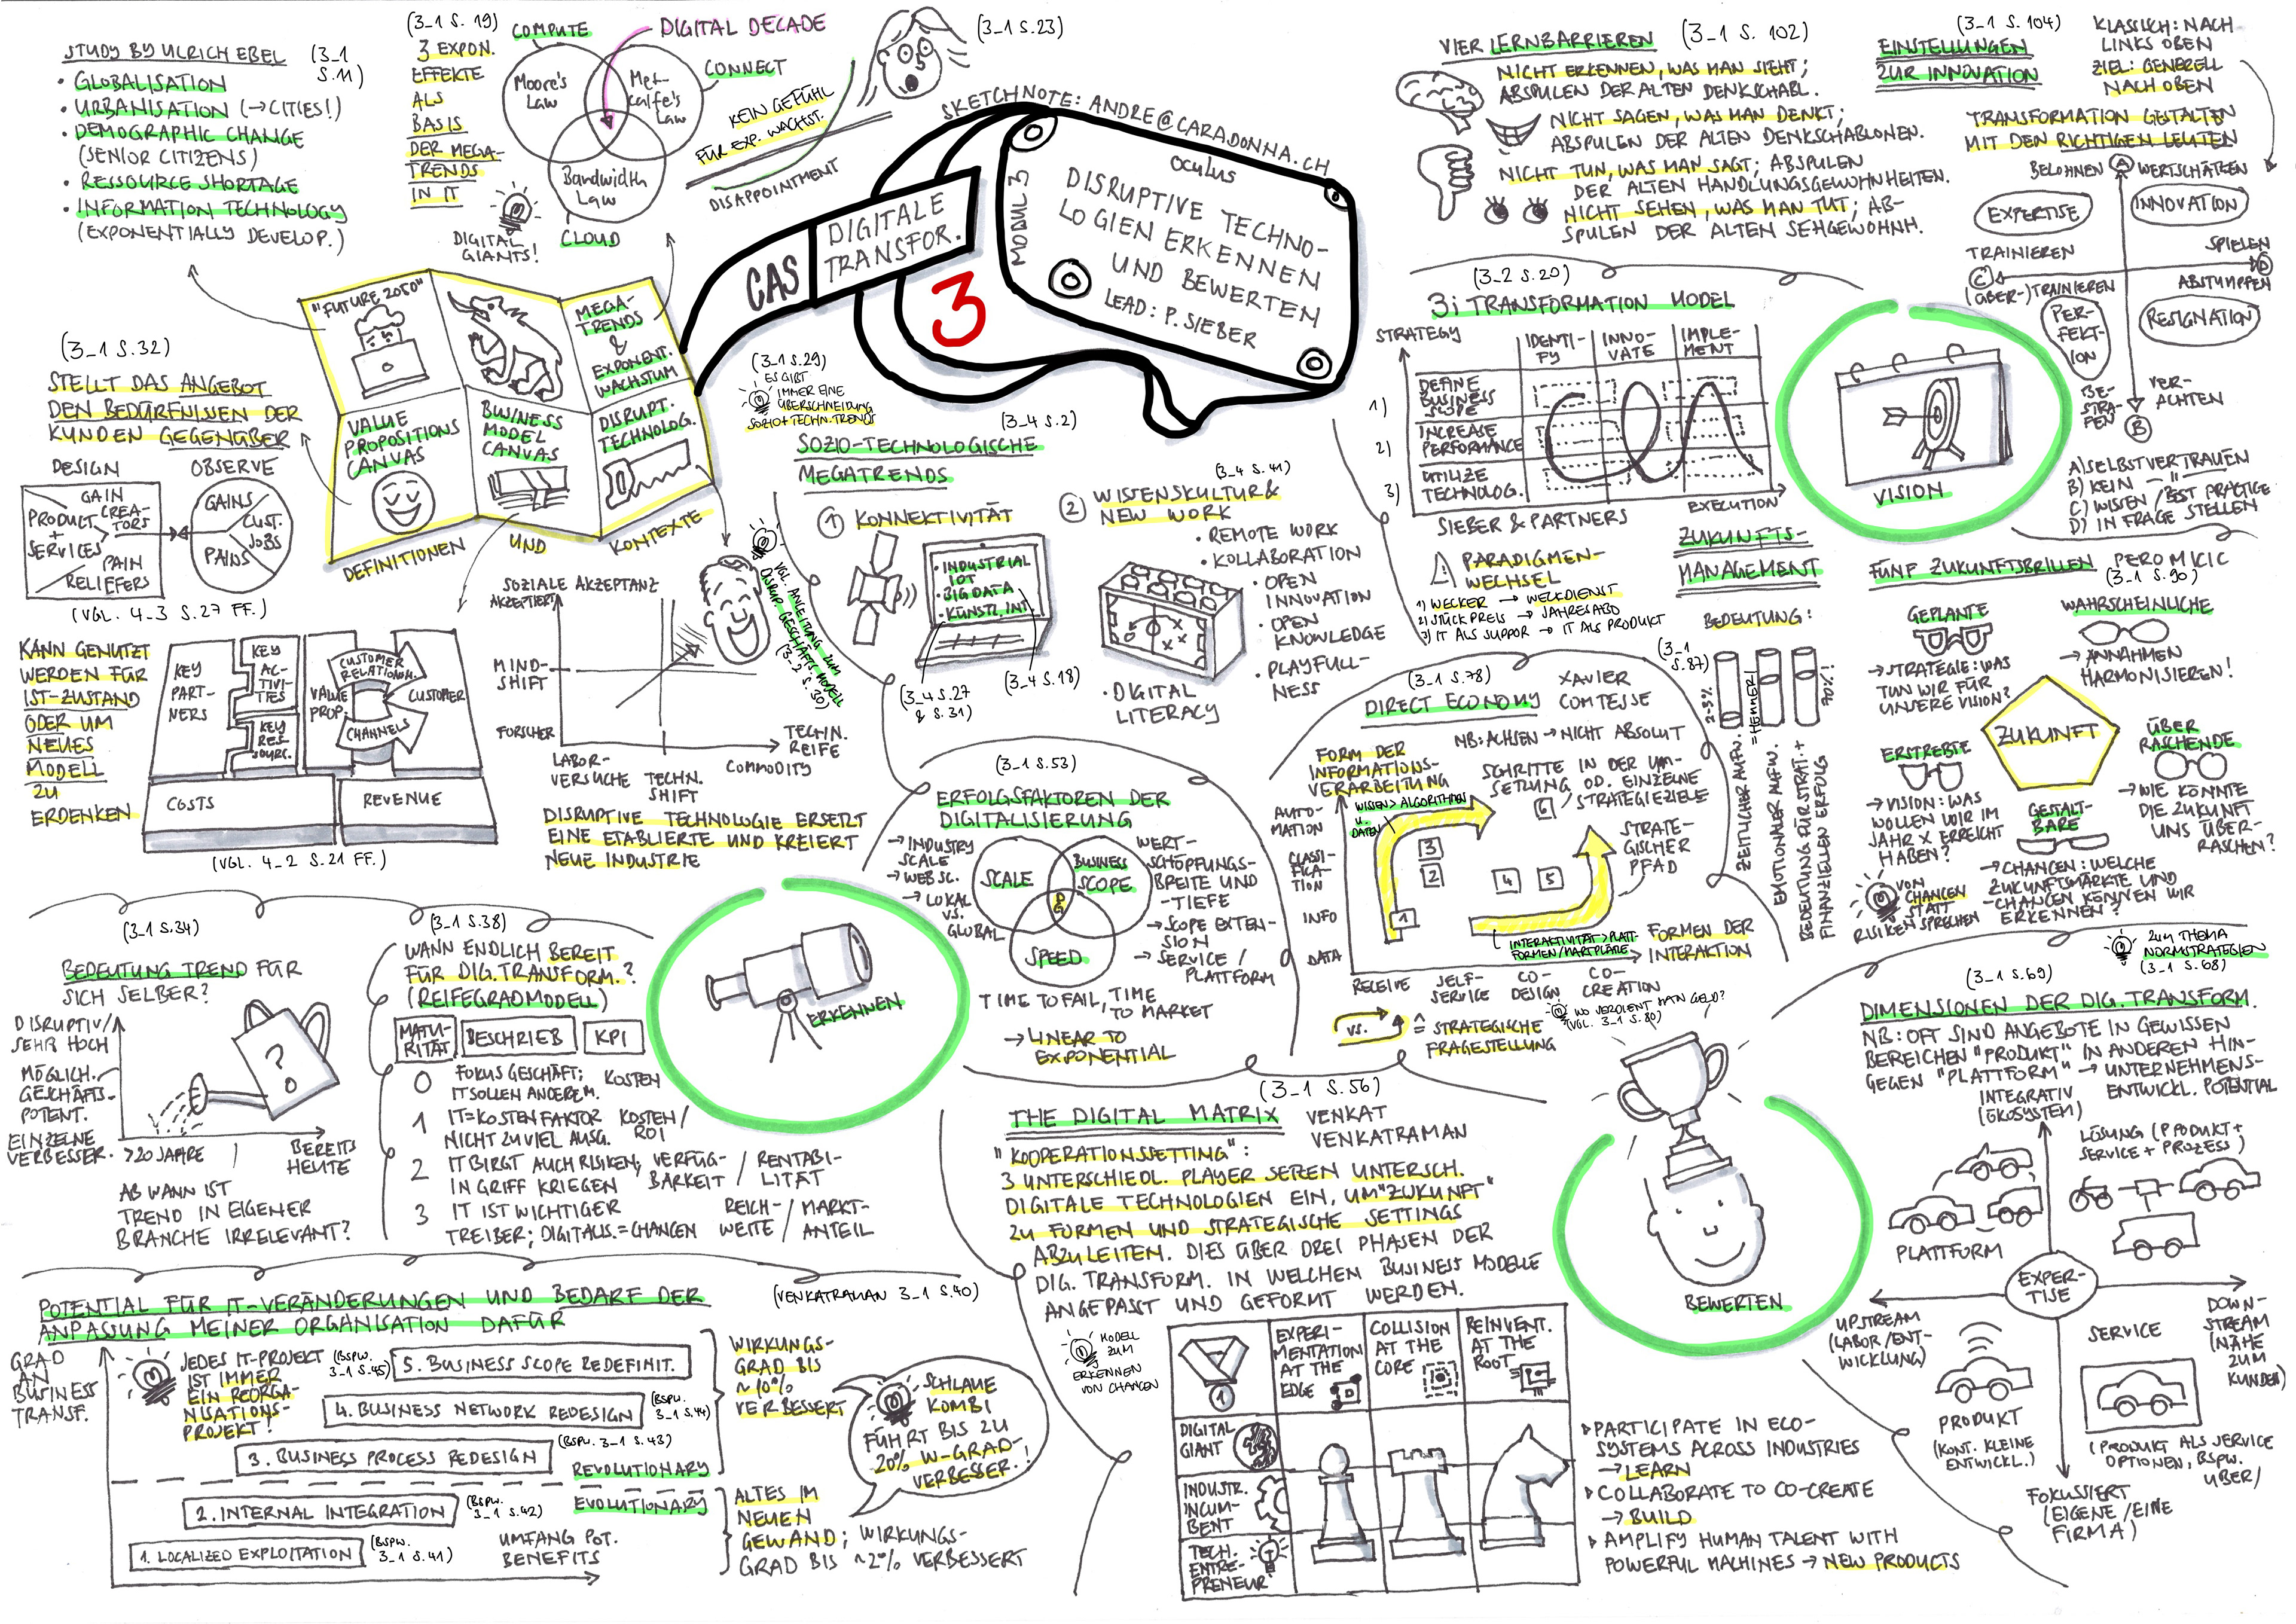 STUDY BY ULRICH EBEL (3_1 S.11)
• GLOBALISATION
• URBANISATION (→CITIES!)
• DEMOGRAPHIC CHANGE
(SENIOR CITIZENS)
• RESSOURCE SHORTAGE
• INFORMATION TECHNOLOGY
(EXPONENTIALLY DEVELOP.)
(3_1 S. 19)
3 EXPON.
EFFEKTE
ALS
BASIS
DER MEGA-
TRENDS
IN IT
COMPUTE
Moore's
Law
Met-
calfe's
Law
CONNECT
Bandwidth
Law
CLOUD
DIGITAL DECADE
DIGITAL
GIANTS!
(3_1 S.23)
KEIN GEFÜHL
FÜR EXP. WACHST.
DISAPPOINTMENT
SKETCHNOTE: ANDRE@CARADONNA.CH
CAS
DIGITALE
TRANSFOR.
3
MODUL 3
oculus
DISRUPTIVE TECHNO-
LOGIEN ERKENNEN
UND BEWERTEN
LEAD: P. SIEBER
"FUTURE 2050"
MEGA-
TRENDS
&
EXPONENT.
WACHSTUM
VALUE
PROPOSITIONS
CANVAS
BUSINESS
MODEL
CANVAS
DISRUPT.
TECHNOLOG.
DEFINITIONEN UND KONTEXTE
(3_1 S.32)
STELLT DAS ANGEBOT
DEN BEDÜRFNISSEN DER
KUNDEN GEGENÜBER
DESIGN
OBSERVE
GAIN
CREA-
TORS
PRODUCT
+
SERVICES
PAIN
RELIEFERS
GAINS
CUST.
JOBS
PAINS
(VGL. 4_3 S.27 FF.)
KANN GENUTZT
WERDEN FÜR
IST-ZUSTAND
ODER UM
NEUES
MODELL
ZU
ERDENKEN
KEY
PART-
NERS
KEY
AC-
TIVI-
TIES
KEY
RES-
SOURC.
VALUE
PROP.
CUSTOMER
RELATIONSH.
CUSTOMER
CHANNELS
COSTS
REVENUE
(VGL. 4_2 S.21 FF.)
SOZIALE AKZEPTANZ
AKZEPTIERT
MIND-
SHIFT
FORSCHER
LABOR-
VERSUCHE
TECHN.
SHIFT
COMMODITY
TECHN.
REIFE
VGL. ANLEITUNG ZUM
DISRUP. GESCHÄFTSMODELL
(3_2 S.30)
DISRUPTIVE TECHNOLOGIE ERSETZT
EINE ETABLIERTE UND KREIERT
NEUE INDUSTRIE
(3_1 S.29)
ES GIBT
IMMER EINE
ÜBERSCHNEIDUNG
SOZIO+TECHN. TRENDS
(3_4 S.2)
SOZIO-TECHNOLOGISCHE
MEGATRENDS
1 KONNEKTIVITÄT
• INDUSTRIAL
IOT
• BIG DATA
• KÜNSTL. INT.
(3_4 S.27
& S.31)
(3_4 S.18)
(3_4 S.41)
2 WISSENSKULTUR &
NEW WORK
• REMOTE WORK
• KOLLABORATION
• OPEN
INNOVATION
• OPEN
KNOWLEDGE
• PLAYFULL-
NESS
• DIGITAL
LITERACY
VIER LERNBARRIEREN (3_1 S. 102)
NICHT ERKENNEN, WAS MAN SIEHT;
ABSPULEN DER ALTEN DENKSCHABL.
NICHT SAGEN, WAS MAN DENKT;
ABSPULEN DER ALTEN DENKSCHABLONEN.
NICHT TUN, WAS MAN SAGT; ABSPULEN
DER ALTEN HANDLUNGSGEWOHNHEITEN.
NICHT SEHEN, WAS MAN TUT; AB-
SPULEN DER ALTEN SEHGEWOHNH.
(3_1 S.104)
EINSTELLUNGEN
ZUR INNOVATION
KLASSISCH: NACH
LINKS OBEN
ZIEL: GENERELL
NACH OBEN
TRANSFORMATION GESTALTEN
MIT DEN RICHTIGEN LEUTEN
BELOHNEN A WERTSCHÄTZEN
EXPERTISE
INNOVATION
TRAINIEREN
SPIELEN
C
D
(ÜBER-)TRAINIEREN
ABSTUMPFEN
PER-
FEKT-
ION
RESIGNATION
BE-
STRA-
FEN
VER-
ACHTEN
B
A) SELBSTVERTRAUEN
B) KEIN — " —
C) WISSEN / BEST PRACTICE
D) IN FRAGE STELLEN
(3_2 S.20)
3i TRANSFORMATION MODEL
STRATEGY
IDENTI-
FY
INNO-
VATE
IMPLE-
MENT
1) DEFINE
BUSINESS
SCOPE
2) INCREASE
PERFORMANCE
3) UTILIZE
TECHNOLOG.
EXECUTION
SIEBER & PARTNERS
PARADIGMEN-
WECHSEL
1) WECKER → WECKDIENST
2) STÜCKPREIS → JAHRESABO
3) IT ALS SUPPOR → IT ALS PRODUKT
VISION
ZUKUNFTS-
MANAGEMENT
BEDEUTUNG:
(3_1 S.87)
2-3%
=HEMMER!
70%!
ZEITLICHER AUFW.
EMOTIONALER AUFW.
BEDEUTUNG FÜR STRAT.+
FINANZIELLEN ERFOLG
FÜNF ZUKUNFTSBRILLEN PERO MICIC
(3_1 S.90)
GEPLANTE
→ STRATEGIE: WAS
TUN WIR FÜR
UNSERE VISION?
WAHRSCHEINLICHE
→ ANNAHMEN
HARMONISIEREN!
ZUKUNFT
ERSTREBTE
→ VISION: WAS
WOLLEN WIR IM
JAHR X ERREICHT
HABEN?
ÜBER
RASCHENDE
→ WIE KÖNNTE
DIE ZUKUNFT
UNS ÜBER-
RASCHEN?
GESTALT-
BARE
→ CHANCEN: WELCHE
ZUKUNFTSMÄRKTE UND
-CHANCEN KÖNNEN WIR
ERKENNEN?
VON
CHANCEN
STATT
RISIKEN SPRECHEN
(3_1 S.78)
DIRECT ECONOMY
XAVIER
COMTESSE
NB: ACHSEN → NICHT ABSOLUT
FORM DER
INFORMATIONS-
VERARBEITUNG
SCHRITTE IN DER UM-
SETZUNG OD. EINZELNE
STRATEGIEZIELE
WISSEN > ALGORITHMEN
U.
DATEN
AUTO-
MATION
CLASSI-
FIKA-
TION
INFO
DATA
1
2
3
4
5
6
STRATE-
GISCHER
PFAD
INTERAKTIVITÄT > PLATT-
FORMEN/MARTPLÄTZE
FORMEN DER
INTERAKTION
RECEIVE
SELF-
SERVICE
CO-
DESIGN
CO-
CREATION
VS. ≙ STRATEGISCHE
FRAGESTELLUNG
WO VERDIENT MAN GELD?
(VGL. 3_1 S.80)
(3_1 S.53)
ERFOLGSFAKTOREN DER
DIGITALISIERUNG
→ INDUSTRY
SCALE
→ WEB SC.
→ LOKAL
VS.
GLOBAL
SCALE
BUSINESS
SCOPE
DG
SPEED
WERT-
SCHÖPFUNGS-
BREITE UND
-TIEFE
→ SCOPE EXTEN-
SION
→ SERVICE /
PLATTFORM
TIME TO FAIL, TIME
TO MARKET
→ LINEAR TO
EXPONENTIAL
(3_1 S.34)
BEDEUTUNG TREND FÜR
SICH SELBER?
DISRUPTIV/
SEHR HOCH
MÖGLICH.
GESCHÄFTS-
POTENT.
EINZELNE
VERBESSER.
>20 JAHRE
BEREITS
HEUTE
?
AB WANN IST
TREND IN EIGENER
BRANCHE IRRELEVANT?
(3_1 S.38)
WANN ENDLICH BEREIT
FÜR DIG. TRANSFORM.?
(REIFEGRADMODELL)
MATU-
RITÄT
BESCHRIEB
KPI
0 FOKUS GESCHÄFT; KOSTEN
IT SOLLEN ANDERE M.
1 IT=KOSTENFAKTOR KOSTEN/
NICHT ZU VIEL AUSG. ROI
2 IT BIRGT AUCH RISIKEN; VERFÜG- / RENTABI-
IN GRIFF KRIEGEN BARKEIT / LITÄT
3 IT IST WICHTIGER REICH- / MARKT-
TREIBER; DIGITALIS.=CHANCEN WEITE / ANTEIL
ERKENNEN
POTENTIAL FÜR IT-VERÄNDERUNGEN UND BEDARF DER
ANPASSUNG MEINER ORGANISATION DAFÜR
(VENKATRAMAN 3_1 S.40)
GRAD
AN
BUSINESS
TRANSF.
JEDES IT-PROJEKT
IST IMMER
EIN REORGA-
NISATIONS-
PROJEKT!
(BSPW.
3_1 S.45)
5. BUSINESS SCOPE REDEFINIT.
4. BUSINESS NETWORK REDESIGN
(BSPW.
3_1 S.44)
3. BUSINESS PROCESS REDESIGN
(BSPW. 3_1 S.43)
REVOLUTIONARY
2. INTERNAL INTEGRATION
(BSPW.
3_1 S.42)
EVOLUTIONARY
1. LOCALIZED EXPLOITATION
(BSPW.
3_1 S.41)
UMFANG POT.
BENEFITS
WIRKUNGS-
GRAD BIS
~10%
VERBESSERT
ALTES IM
NEUEN
GEWAND; WIRKUNGS-
GRAD BIS ~2% VERBESSERT
SCHLAUE
KOMBI
FÜHRT BIS ZU
20% W-GRAD-
VERBESSER.!
(3_1 S.56)
THE DIGITAL MATRIX VENKAT
VENKATRAMAN
"KOOPERATIONSSETTING":
3 UNTERSCHIEDL. PLAYER SETZEN UNTERSCH.
DIGITALE TECHNOLOGIEN EIN, UM "ZUKUNFT"
ZU FORMEN UND STRATEGISCHE SETTINGS
ABZULEITEN. DIES ÜBER DREI PHASEN DER
DIG. TRANSFORM. IN WELCHEN BUSINESS MODELLE
ANGEPASST UND GEFORMT WERDEN.
MODELL
ZUM
ERKENNEN
VON CHANCEN
1
EXPERI-
MENTATION
AT THE
EDGE
COLLISION
AT THE
CORE
REINVENT.
AT THE
ROOT
DIGITAL
GIANT
INDUSTR.
INCUM-
BENT
TECH.
ENTRE-
PRENEUR
▷ PARTICIPATE IN ECO-
SYSTEMS ACROSS INDUSTRIES
→ LEARN
▷ COLLABORATE TO CO-CREATE
→ BUILD
▷ AMPLIFY HUMAN TALENT WITH
POWERFUL MACHINES → NEW PRODUCTS
BEWERTEN
ZUM THEMA
NORMSTRATEGIEN
(3_1 S.68)
(3_1 S.69)
DIMENSIONEN DER DIG. TRANSFORM.
NB: OFT SIND ANGEBOTE IN GEWISSEN
BEREICHEN "PRODUKT" IN ANDEREN HIN-
GEGEN "PLATTFORM" → UNTERNEHMENS-
ENTWICKL. POTENTIAL
INTEGRATIV
(ÖKOSYSTEM)
LÖSUNG (PRODUKT+
SERVICE + PROZESS)
PLATTFORM
EXPER-
TISE
UPSTREAM
(LABOR/ENT-
WICKLUNG)
DOWN-
STREAM
(NÄHE
ZUM
KUNDEN)
SERVICE
PRODUKT
(KONT. KLEINE
ENTWICKL.)
(PRODUKT ALS SERVICE
OPTIONEN, BSPW.
UBER)
FOKUSSIERT
(EIGENE/EINE
FIRMA)